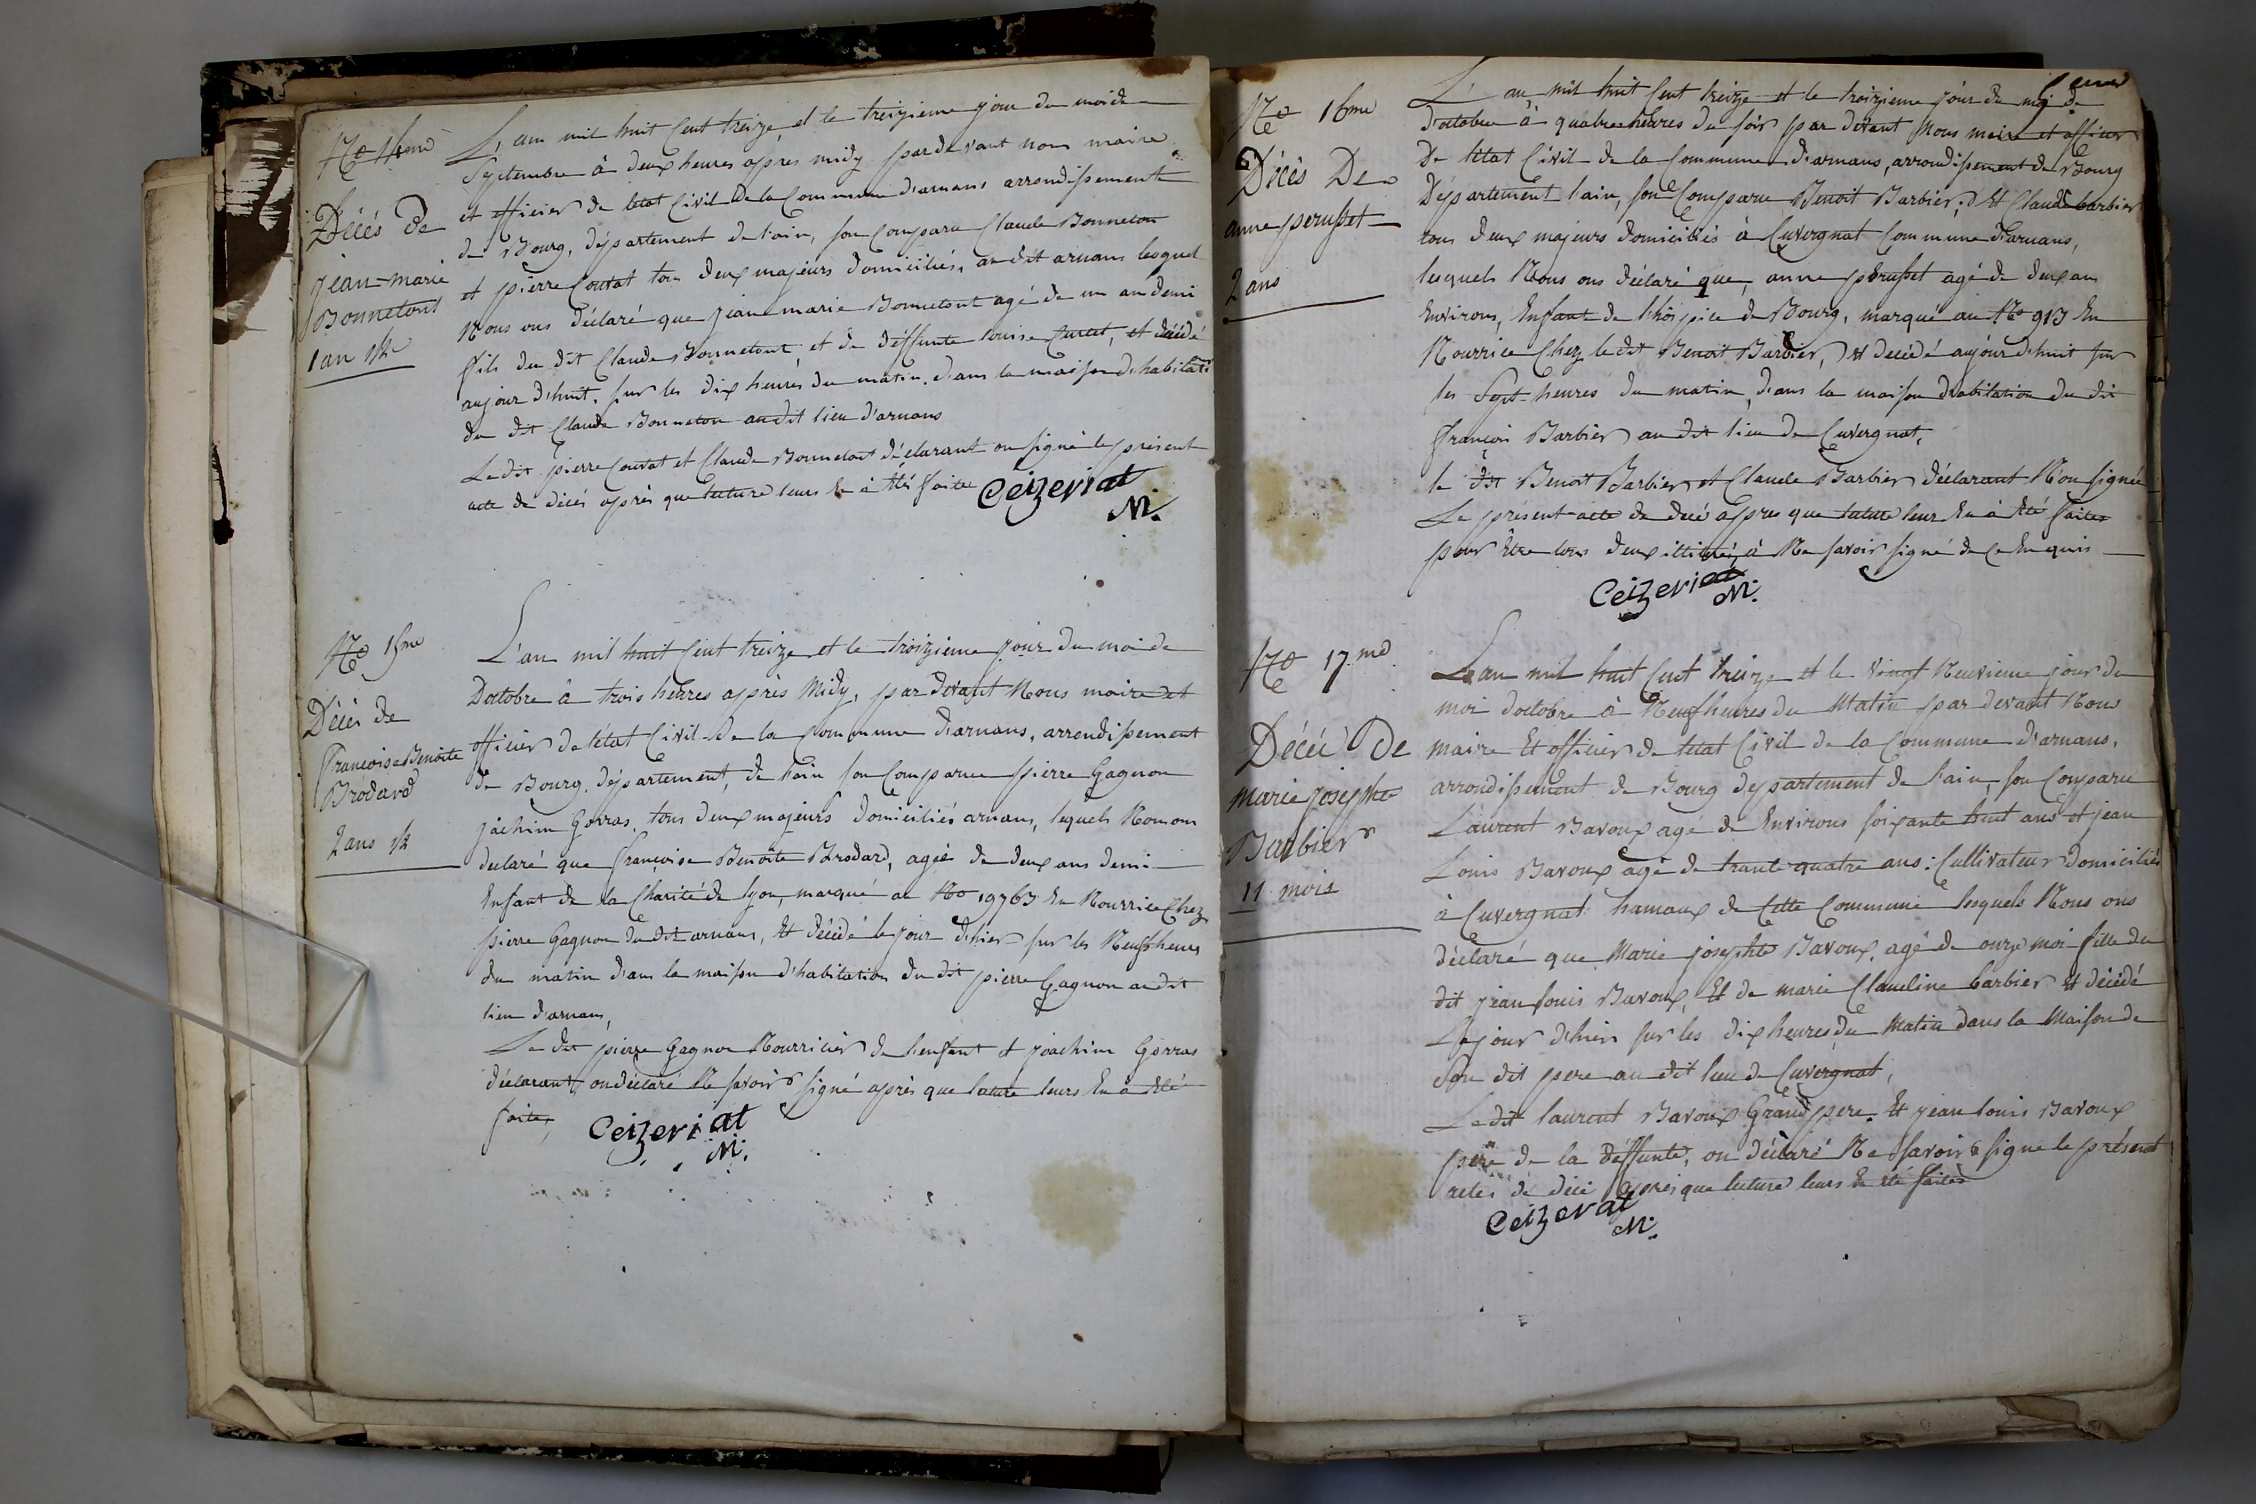 No 14me
Décés de
jean-marie
Bonnetont
1 an 1/2
L'an mil huit Cent treize et le treizieme jour du mois de
Septembre â deux heures après midy pardevant nous maire
et officier de letat Civil de la Commune d'arnans arrondissement
de Bourg, département de l'ain, son Comparu Claude Bonneton
et pierre Coutat tous deux majeurs domiciliés, au dit arnans lesquel
Nous ons déclaré que jean marie Bonnetont agé de un an demi
fils du dit Claude Bonnetont, et de deffunte louise et décédé
aujour d'huit, sur les dix heures du matin, dans la maison d'habitati
du dit Claude Bonneton audit lieu d'arnans
Le dit pierre Coutat et Claude Bonnetont déclarant on signé le présent
acte de décés après que lecture leurs En â été faite Ceizeriat
M.
No 15me
Décés de
Francoise Benoite
Brodard
2 ans 1/2
L'an mil huit Cent treize et le troizieme jour du moi de
Doctobre â trois heures après Midy, par devant Nous maire et
officier de l'état Civil de la Commune d'arnans, arrondissement
de Bourg, département de l'ain son Comparu pierre Gagnon
jôchim Gorras, tous deux majeurs domiciliés arnans, lequels Nous on
declaré que françoise Benoite Brodard, agée de deux ans demi
Enfant de la Charité de lyon, marqué au No 19763 En Nourrice Chez
pierre Gagnon du dit arnans, Et décédé le jour d'hier sur les Neuf heures
du matin dans la maison d'habitation du dit pierre Gagnon audit
lieu d'arnans,
Le dit pierre Gagnon Nourricier de l'enfant et joachim Gorras
déclarant, on déclaré Ne savoir signé après que lecture leurs En â été
faite, Ceizeriat
M.
No 16me
Décès De
anne perusset
2 ans
L'an mil huit Cent treize et le troizieme jour du moi de
D'octobre â quatre heures du soir par devant Nous maire et officier
De l'état Civil de la Commune d'arnans, arrondissement de Bourg
Département l'ain, son Comparu Benoit Barbier, Et Claude barbier
tous deux majeurs domiciliés à Cuvergnat Commune d'arnans,
lesquels Nous ons déclaré que, anne perusset agé de deux an
Environs, Enfant de l'hôspice de Bourg, marqué au No 913 En
Nourrice Chez le dit Benoit Barbier, Et decédé aujour d'huit sur
les Sept heures du matin, dans la maison d'abitation du dit
françoi Barbier au dit lieu de Cuvergnat,
le dit Benoit Barbier et Claude Barbier Déclarant N'on signée
Le présent acte de decé après que lecture leur En â été faites
pour Etre tous deux à Ne savoir signé de ce Enquis
Ceizeriat
M.
No 17.me
Décéé De
marie josephte
Barbier
11 mois
L'an mil huit Cent treize et le Vingt Neuvieme jour du
moi doctobre â Neuf heures du Matin par devant Nous
maire Et officier de letat Civil de la Commune d'arnans,
arrondissement de Bourg departement de l'ain, son Comparu
Laurent Bavoux agé de Environs soixante huit ans et jean
Louis Bavoux agé de trante quatre ans: Cultivateur domiciliés
à Cuvergnat hamaux de Cette Commune lesquels Nous ons
déclaré que Marie josephte Bavoux, agé de onze moi fille du
dit jean louis Bavoux, Et de marie Claudine barbier Et décédé
Le jour d'hier sur les dix heures du Matin dans la Maison de
Son dit pere au dit lieu de Cuvergnat,
Le dit laurent Bavoux Grand pere, Et jean louis Bavoux
pere de la deffunte, on déclaré Ne savoir signe le présent
actes de déce après que lecture leurs En été faites
Ceizerat
M.